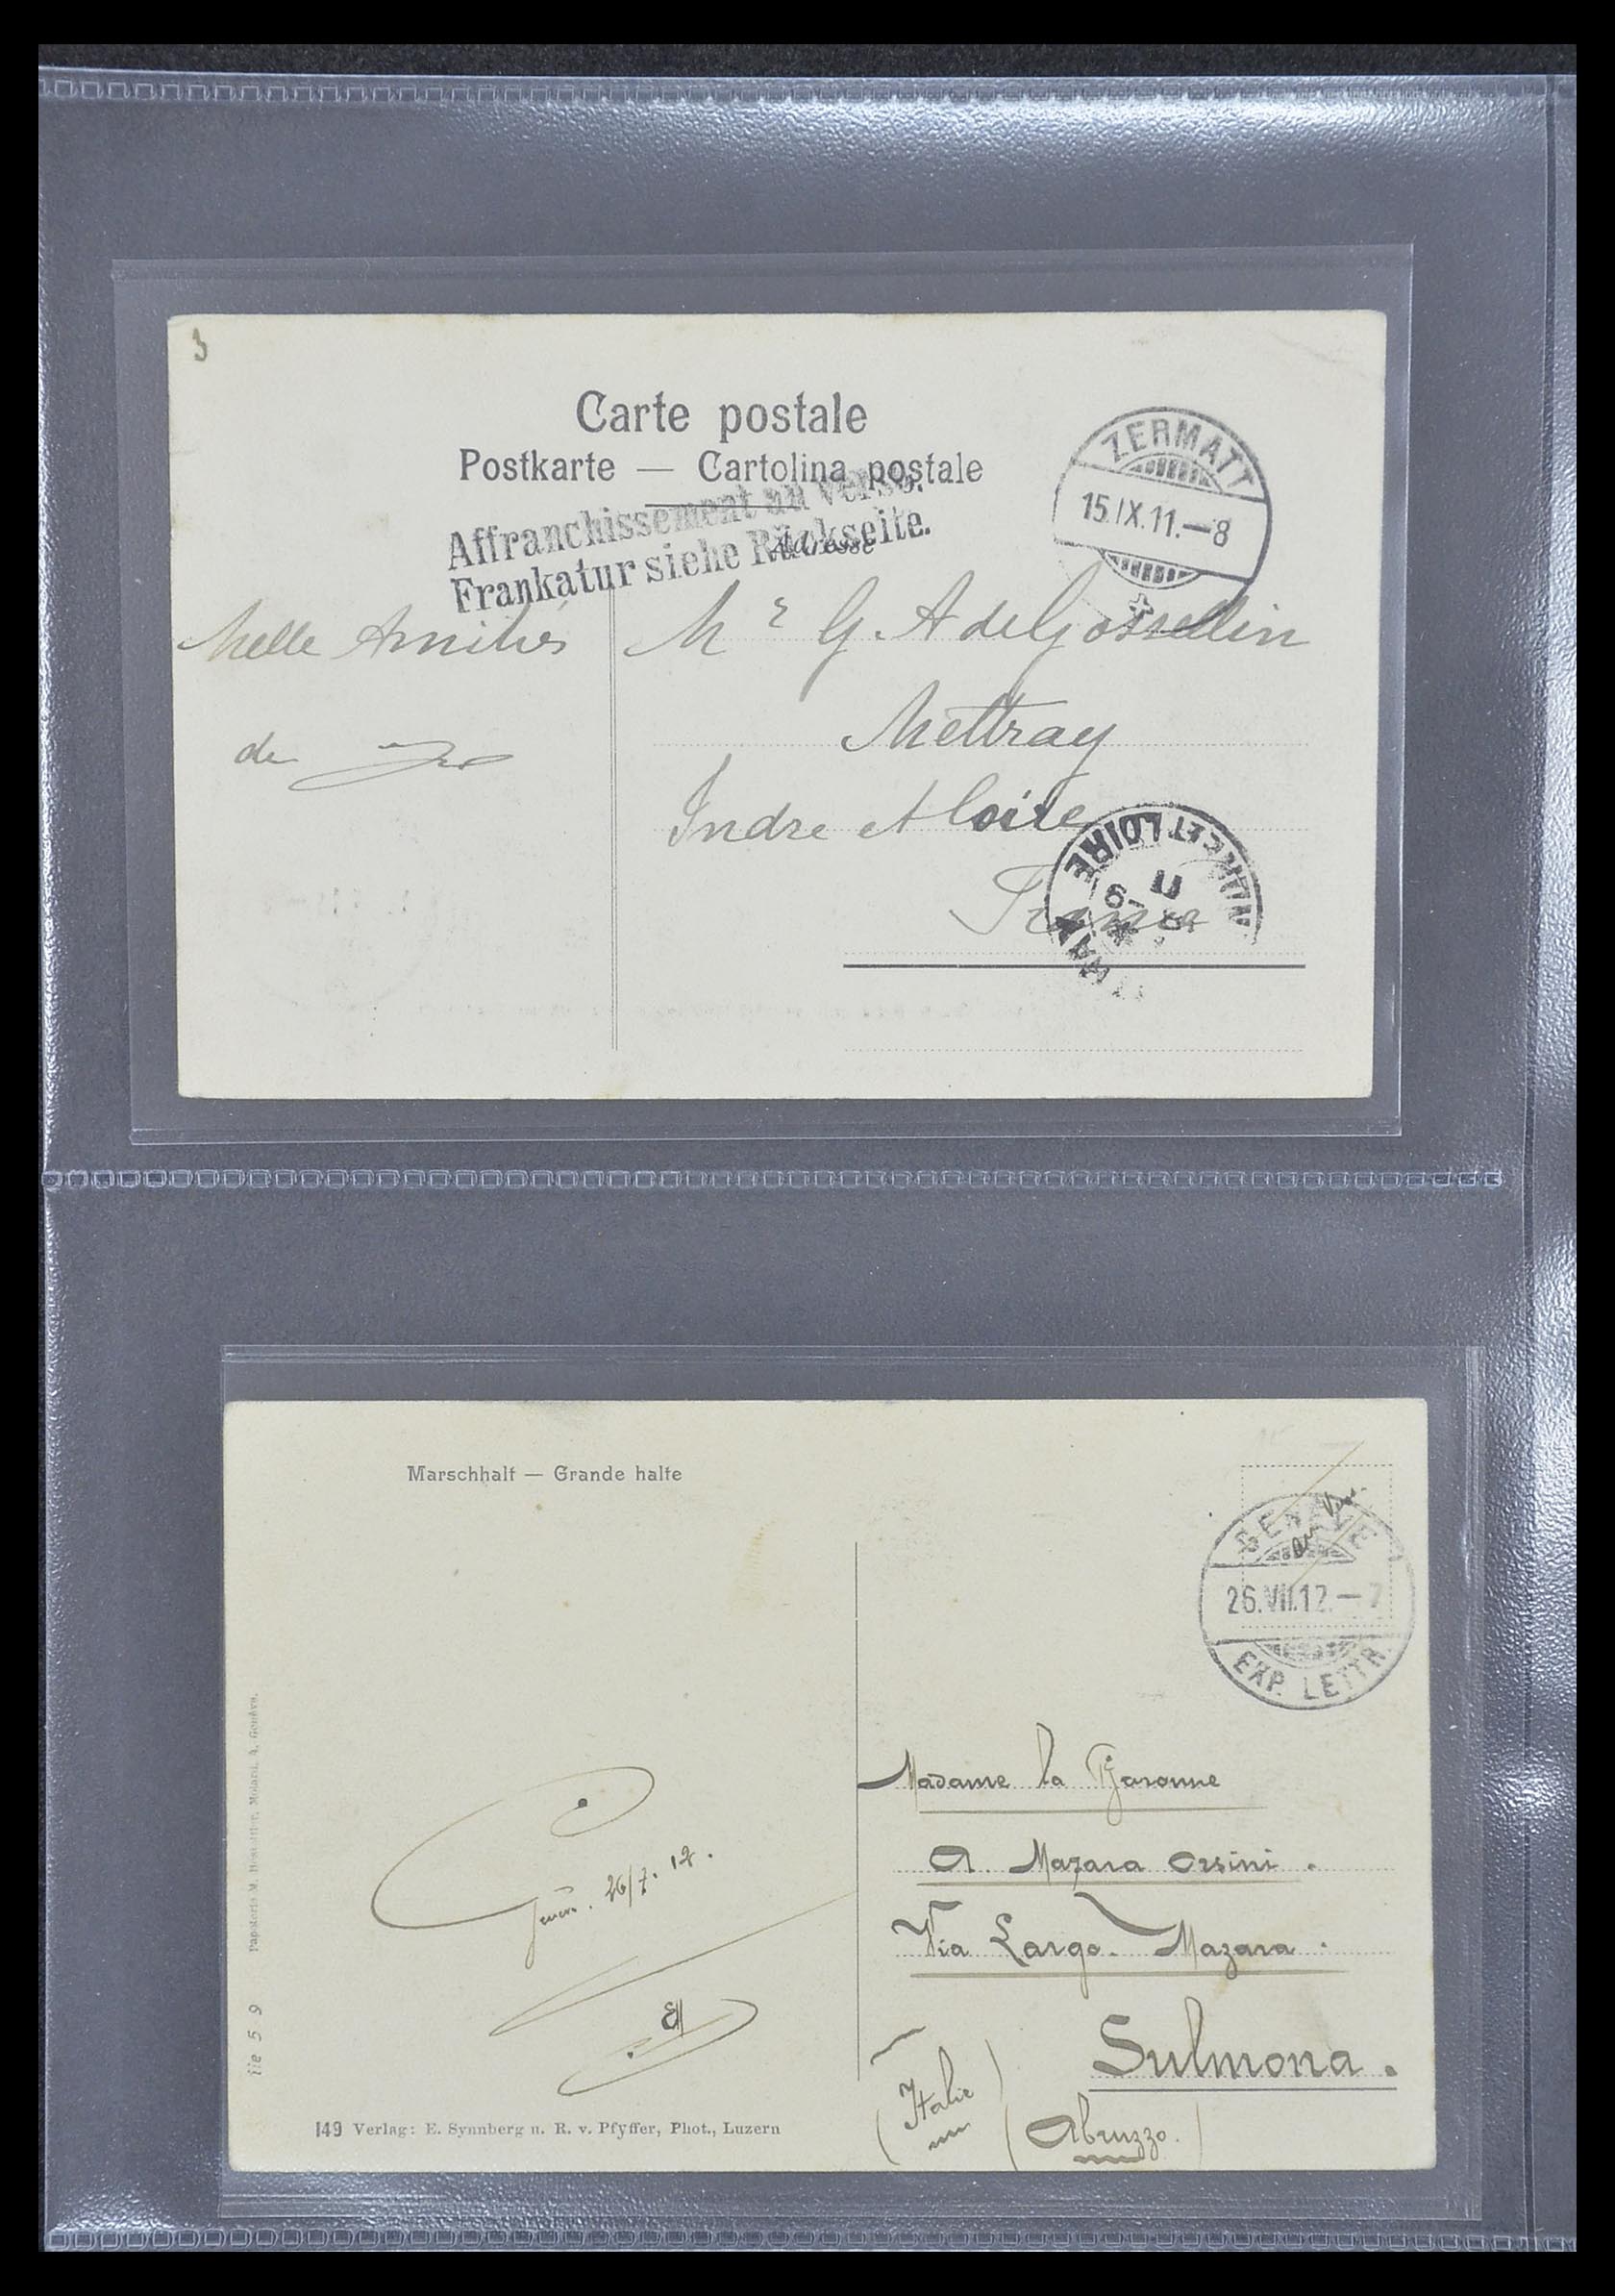 3
Carte postale
Postkarte — Cartolina postale
Affranchissement au verso.
Frankatur siehe Rückseite.
Adresse
ZERMATT
15.IX.11.—8
Melle Amitiés
de
Mr G. A de Gosselin
Mettray
Indre et Loire
France
INDRE ET LOIRE
Marschhalt — Grande halte
GENÈVE
au Verso
26.VII.12.—7
EXP. LETTR.
Madame la Baronne
A. Mazara Orsini.
Via Largo. Mazara.
Sulmona.
(Italie) (Abruzzo.)
26/7.12.
149 Verlag: E. Synnberg u. R. v. Pfyffer, Phot., Luzern
Papeterie M. Molard, 4, Genève.
iie 5 9